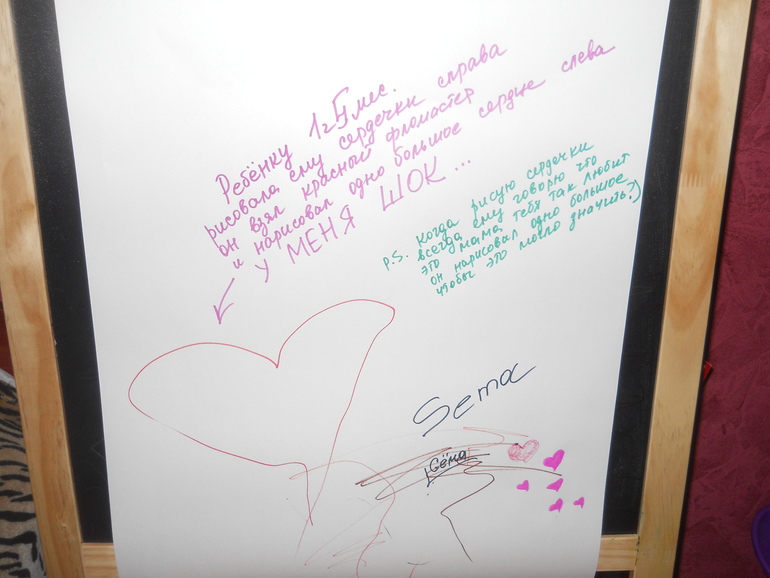 Ребёнку 1г5мес.
рисовала ему сердечки справа
он взял красный фломастер
и нарисовал одно большое сердце слева
У МЕНЯ ШОК...
p.s. когда рисую сердечки
всегда ему говорю что
это мама тебя так любит
он нарисовал одно большое
чтобы это могло значить?)
Sema
Сёма